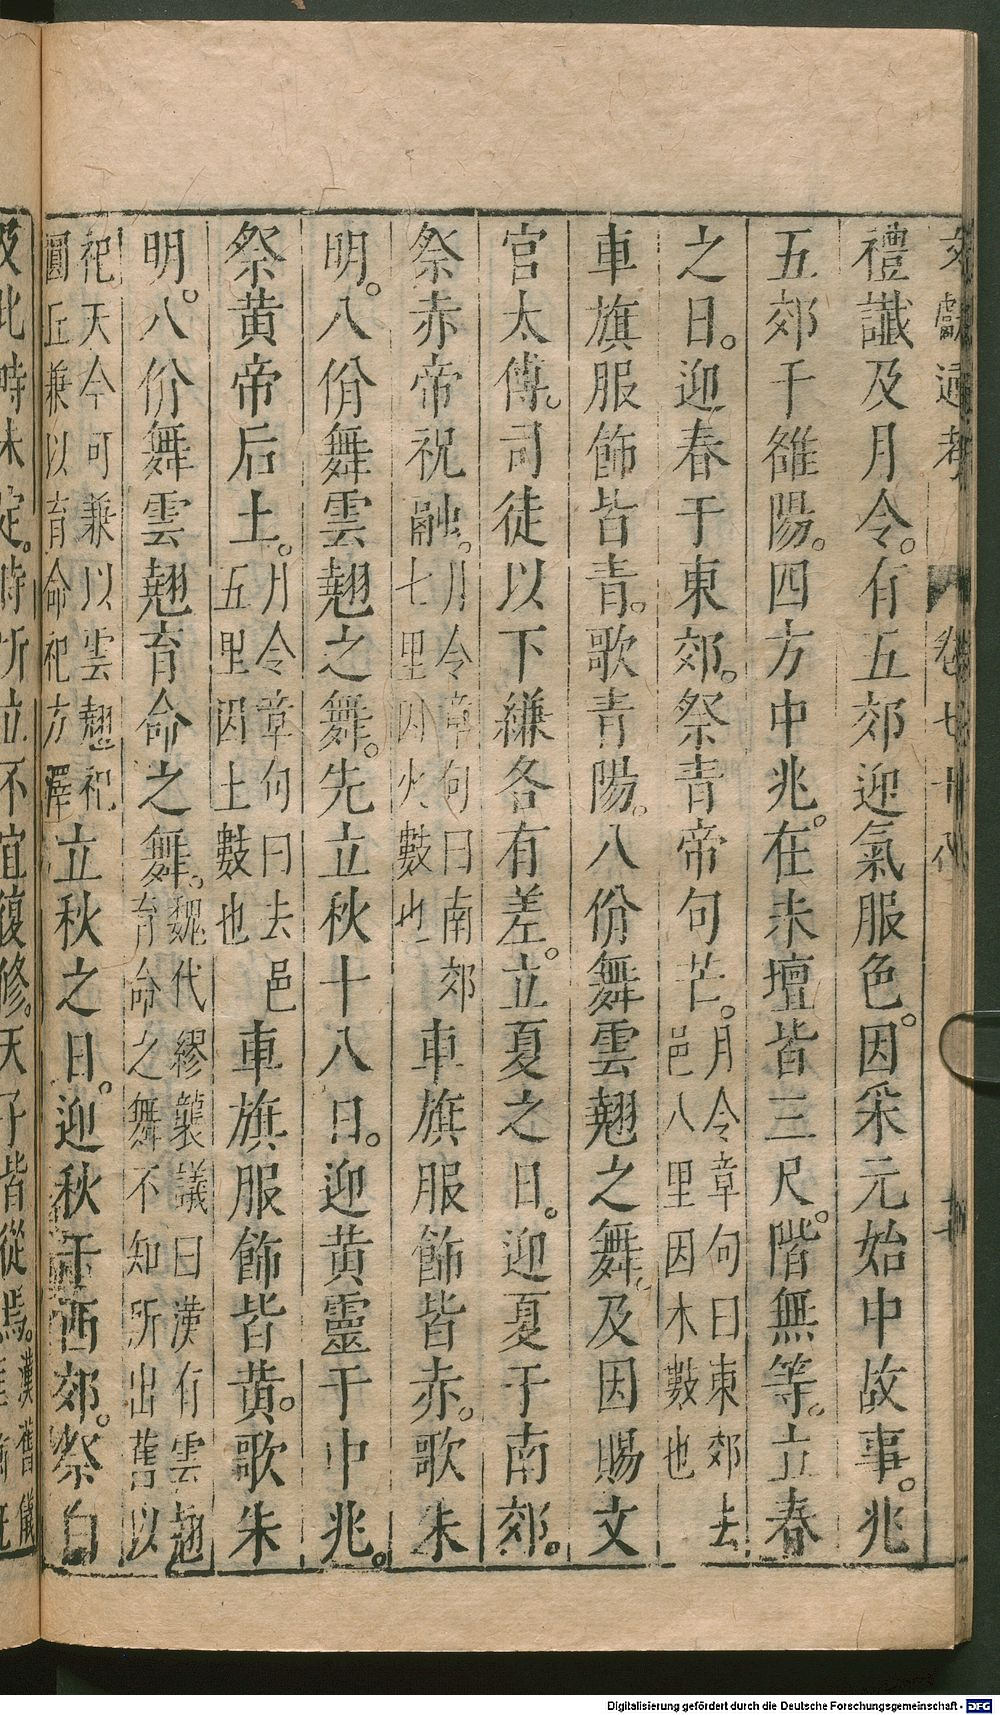 禮讖及月令。有五郊迎氣服色。因采元始中故事。兆
五郊于雒陽。四方中兆。在未壇皆三尺。階無等。立春
之日。迎春于東郊。祭青帝句芒。月令章句曰東郊去邑八里因木數也
車旗服飾皆青。歌青陽。八佾舞雲翹之舞。及因賜文
官太傅。司徒以下縑各有差。立夏之日。迎夏于南郊。
祭赤帝祝融。月令章句曰南郊七里因火數也。車旗服飾皆赤。歌朱
明。八佾舞雲翹之舞。先立秋十八日。迎黃靈于中兆。
祭黃帝后土。月令章句曰去邑五里因土數也車旗服飾皆黃。歌朱
明。八佾舞雲翹育命之舞。魏代繆襲議曰漢有雲翹育命之舞不知所出舊以
祀天今可兼以雲翹祀圓丘兼以育命祀方澤立秋之日。迎秋于西郊。祭白
文獻通考 卷七十八
及此時未定。時所立不宜復修。天子皆從焉。漢舊儀
Digitalisierung gefördert durch die Deutsche Forschungsgemeinschaft - DFG